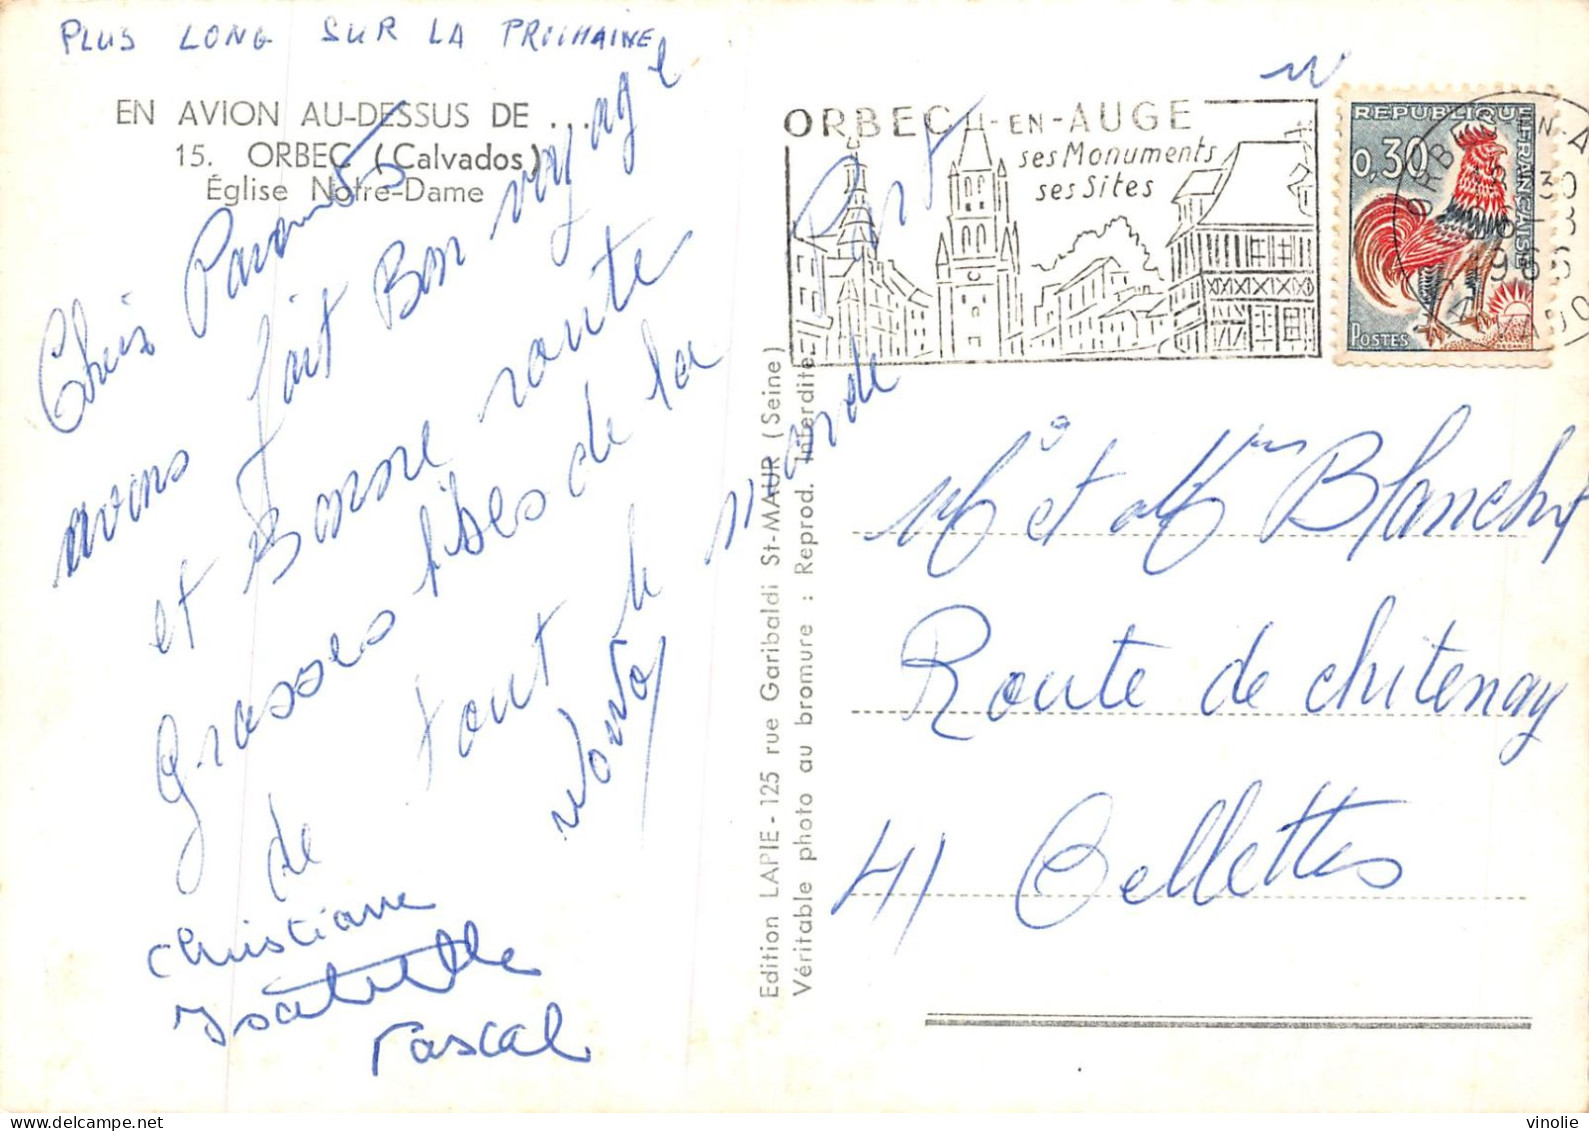 PLUS LONG SUR LA PROCHAINE
EN AVION AU-DESSUS DE ...
15. ORBEC (Calvados)
Église Notre-Dame
Chers Parents
avons fait Bon voyage
et Bonne route
Grosses bises de la part
de tout le monde
Nono
Christiane
Isabelle
Pascal
Edition LAPIE - 125 rue Garibaldi St-MAUR (Seine)
Véritable photo au bromure : Reprod. Interdite
ORBEC-EN-AUGE
ses Monuments
ses Sites
REPUBLIQUE
FRANÇAISE
0,30
POSTES
Mr et Mme Blanchet
Route de chitenay
41 Cellettes
vinolie